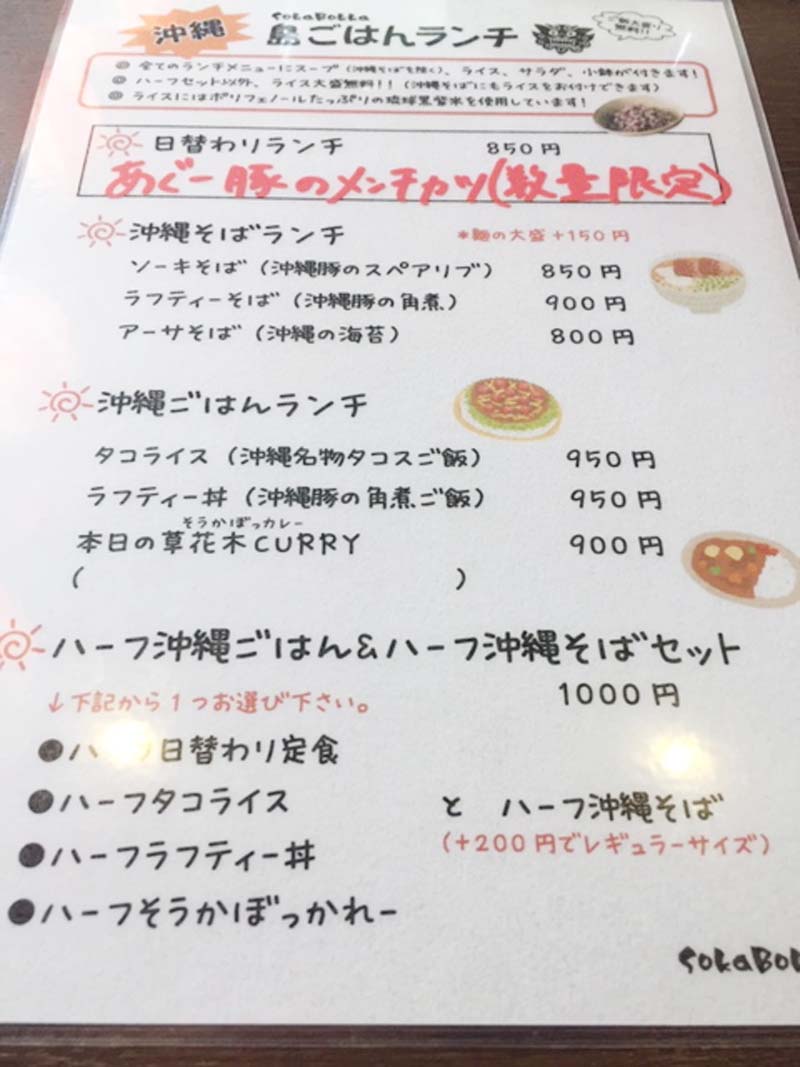 SokaBokka
沖縄 島ごはんランチ
無料!!
◎ 全てのランチメニューにスープ(沖縄そばを除く)、ライス、サラダ、小鉢が付きます!
◎ ハーフセット以外、ライス大盛無料!!(沖縄そばにもライスをお付けできます)
◎ ライスにはポリフェノールたっぷりの琉球黒紫米を使用しています!
日替わりランチ 850円
あぐー豚のメンチカツ(数量限定)
沖縄そばランチ *麺の大盛+150円
ソーキそば(沖縄豚のスペアリブ) 850円
ラフティーそば(沖縄豚の角煮) 900円
アーサそば(沖縄の海苔) 800円
沖縄ごはんランチ
タコライス(沖縄名物タコスご飯) 950円
ラフティー丼(沖縄豚の角煮ご飯) 950円
そうかぼっカレー
本日の草花木CURRY 900円
( )
ハーフ沖縄ごはん&ハーフ沖縄そばセット
↓下記から1つお選び下さい。 1000円
●ハーフ日替わり定食
●ハーフタコライス と ハーフ沖縄そば
(+200円でレギュラーサイズ)
●ハーフラフティー丼
●ハーフそうかぼっかれー